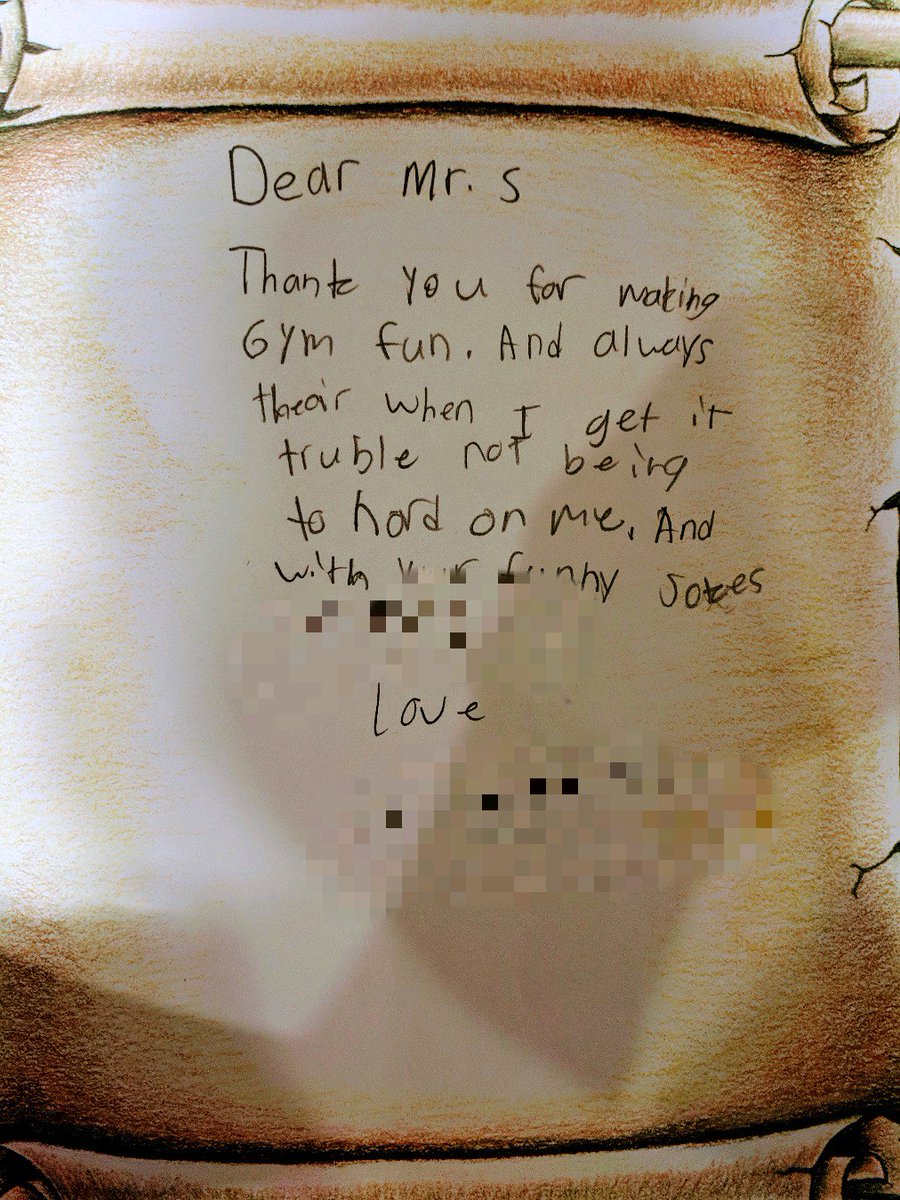 Dear Mr. S
Thank you for making
Gym fun. And always
theair when I get it
truble not being
to hard on me. And
with your funny Jokes
Love